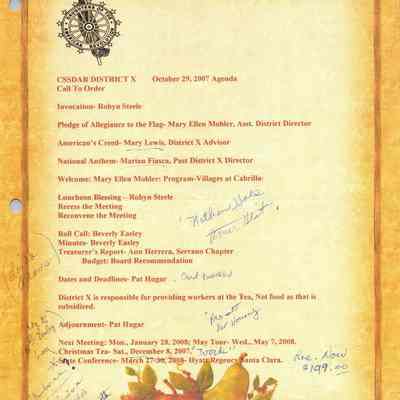 CSSDAR DISTRICT X October 29, 2007 Agenda
Call To Order
Invocation- Robyn Steele
Pledge of Allegiance to the Flag- Mary Ellen Mohler, Asst. District Director
American's Creed- Mary Lewis, District X Advisor
National Anthem- Marian Fiasca, Past District X Director
Welcome: Mary Ellen Mohler: Program-Villages at Cabrillo
Luncheon Blessing - Robyn Steele
Recess the Meeting
Reconvene the Meeting
"Nathan Hale
Roll Call: Beverly Easley
Minutes- Beverly Easley
Treasurer's Report- Ann Herrera, Serrano Chapter
Budget: Board Recommendation
Dates and Deadlines- Pat Hugar
District X is responsible for providing workers at the Tea, Not food as that is
subsidized.
Adjournment- Pat Hugar
Next Meeting: Mon., January 28, 2008; May Tour- Wed., May 7, 2008.
Christmas Tea- Sat., December 8, 2007. "Work"
State Conference- March 27-30, 2008- Hyatt Regency Santa Clara.
Now
$199.00